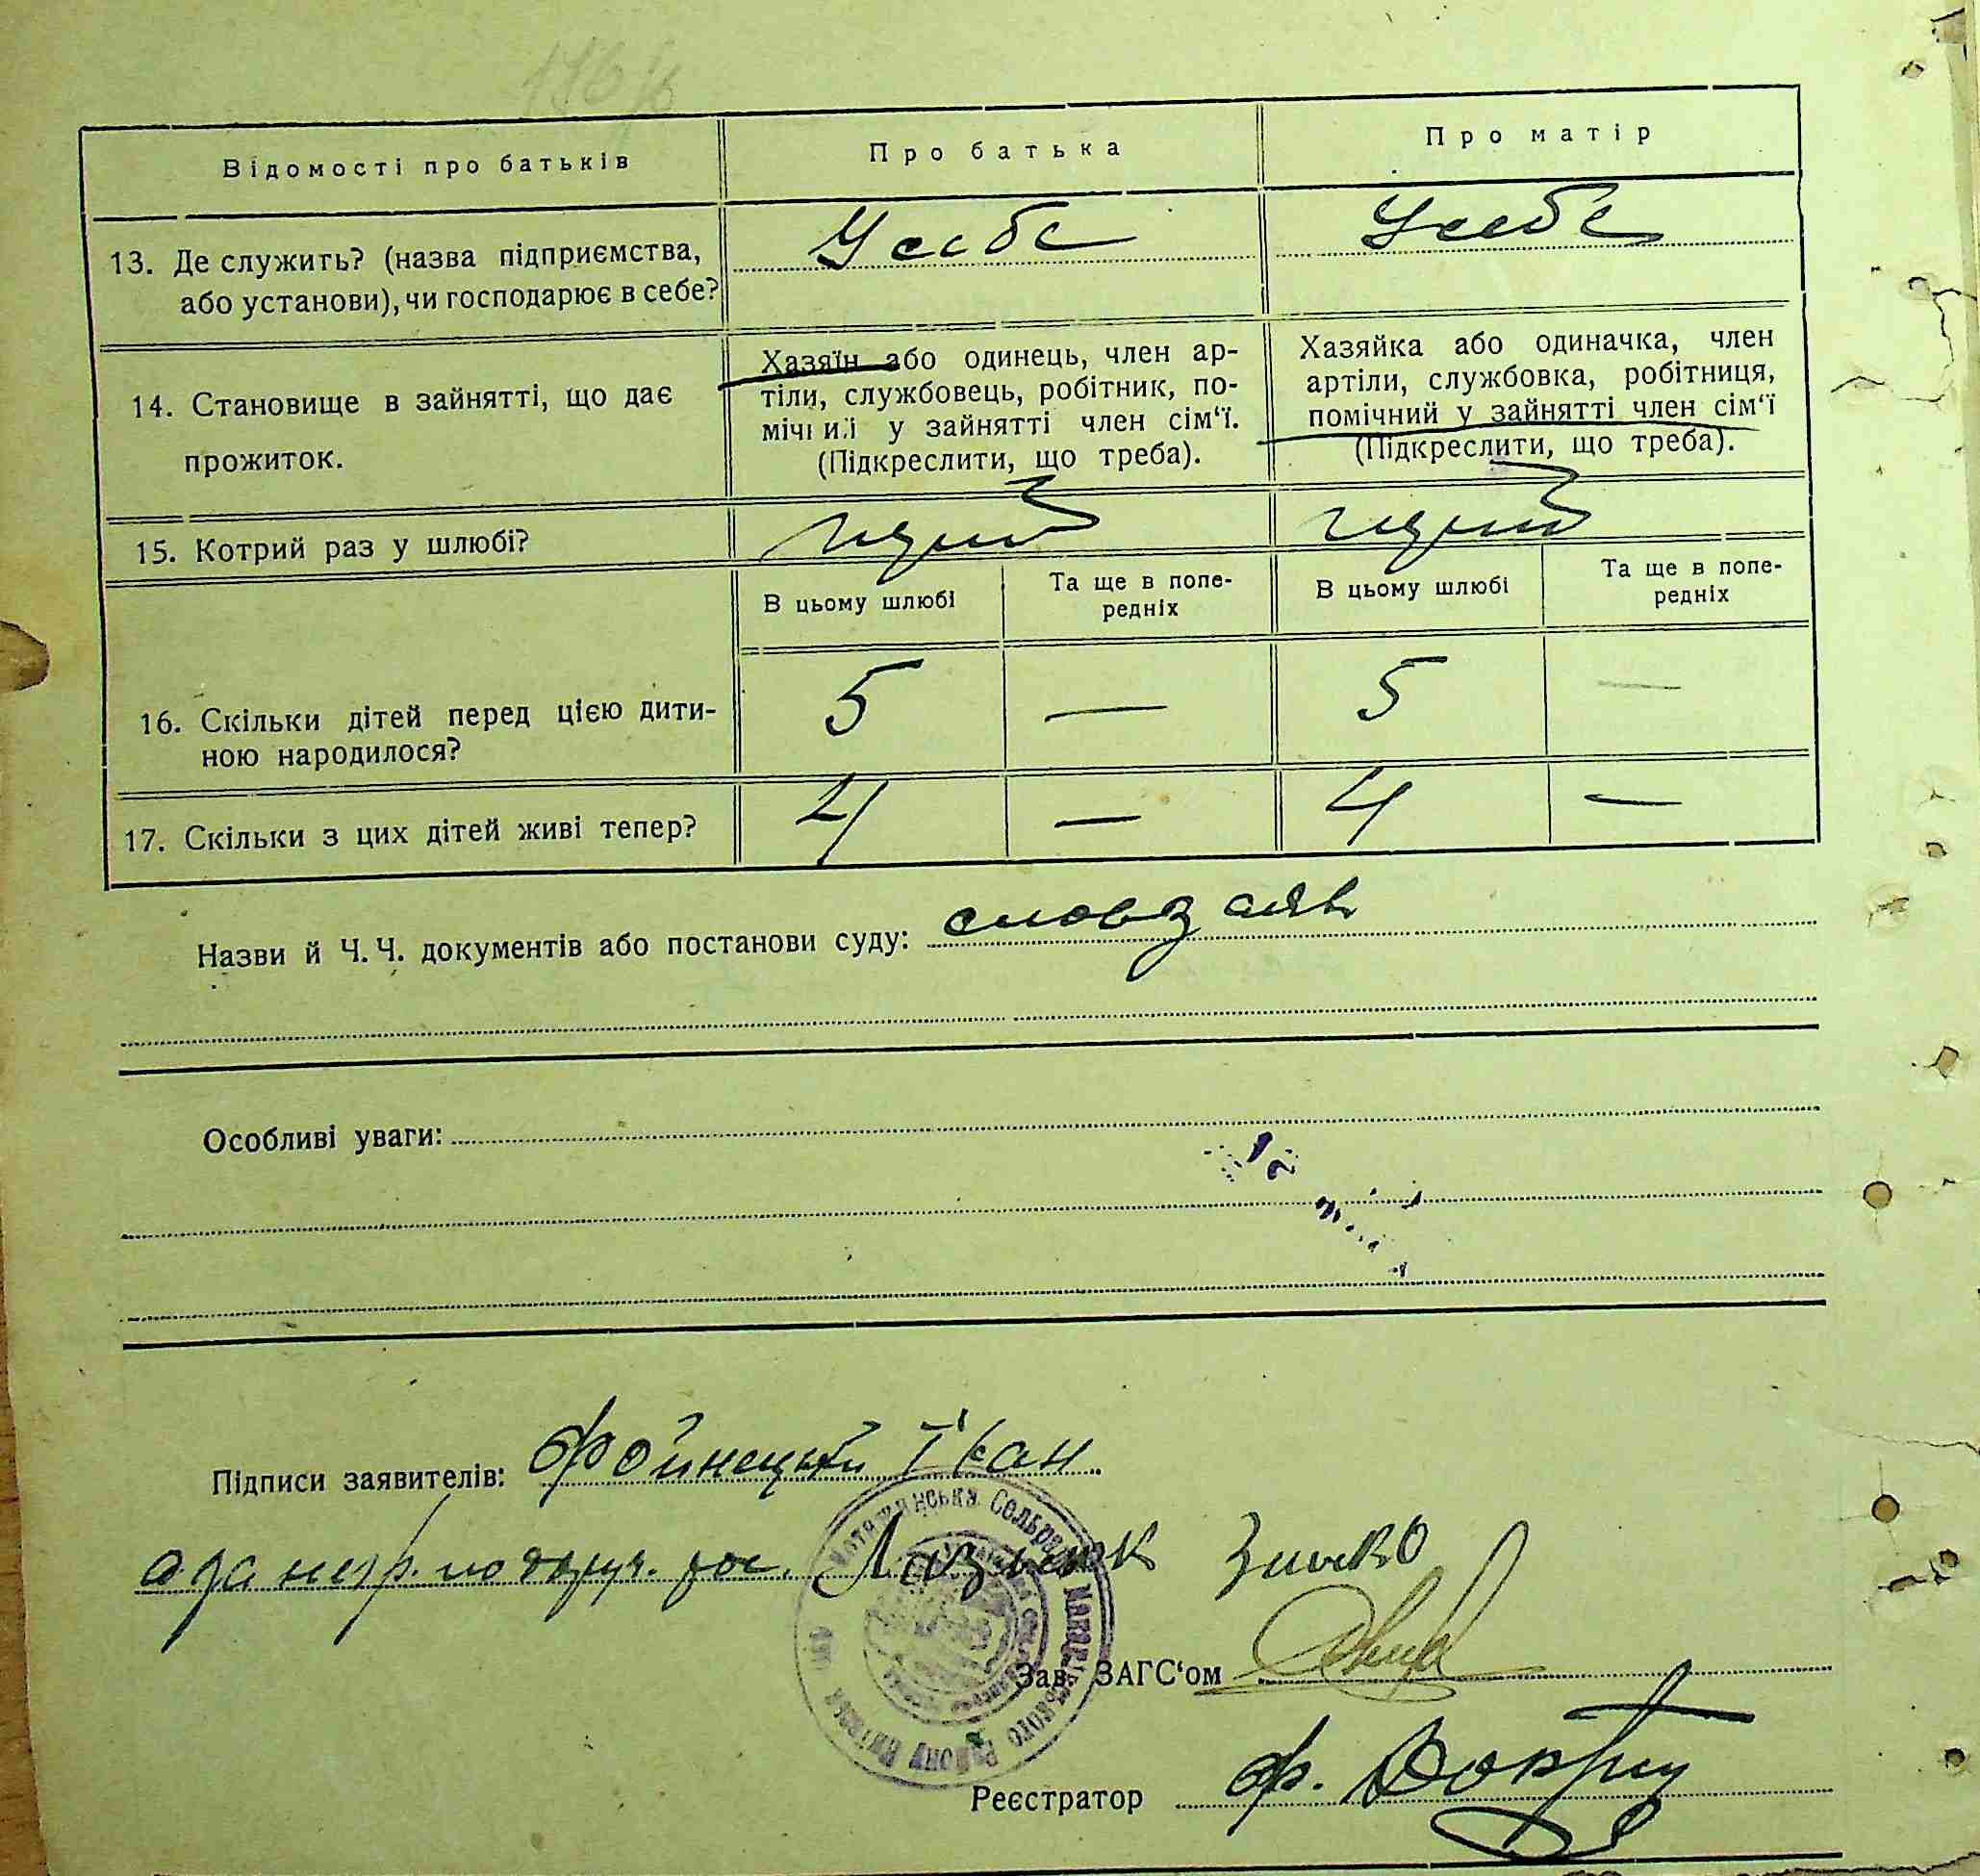 Відомості про батьків
Про батька
Про матір
13. Де служить? (назва підприємства, або установи), чи господарює в себе?
У себе
У себе
14. Становище в зайнятті, що дає прожиток.
Хазяїн або одинець, член ар-
тіли, службовець, робітник, по-
мічний у зайнятті член сім‘ї.
(Підкреслити, що треба).
Хазяйка або одиначка, член
артіли, службовка, робітниця,
помічний у зайнятті член сім‘ї
(Підкреслити, що треба).
15. Котрий раз у шлюбі?
В цьому шлюбі
Та ще в попе-
редніх
В цьому шлюбі
Та ще в попе-
редніх
16. Скільки дітей перед цією дити-
ною народилося?
5 — 5 —
17. Скільки з цих дітей живі тепер?
4 — 4 —
Назви й Ч. Ч. документів або постанови суду:
Особливі уваги:
Підписи заявителів: Фойнецкий
а за негр. по
Зав. ЗАГС‘ом
Реєстратор ф.
Сельрада Макарівського Району